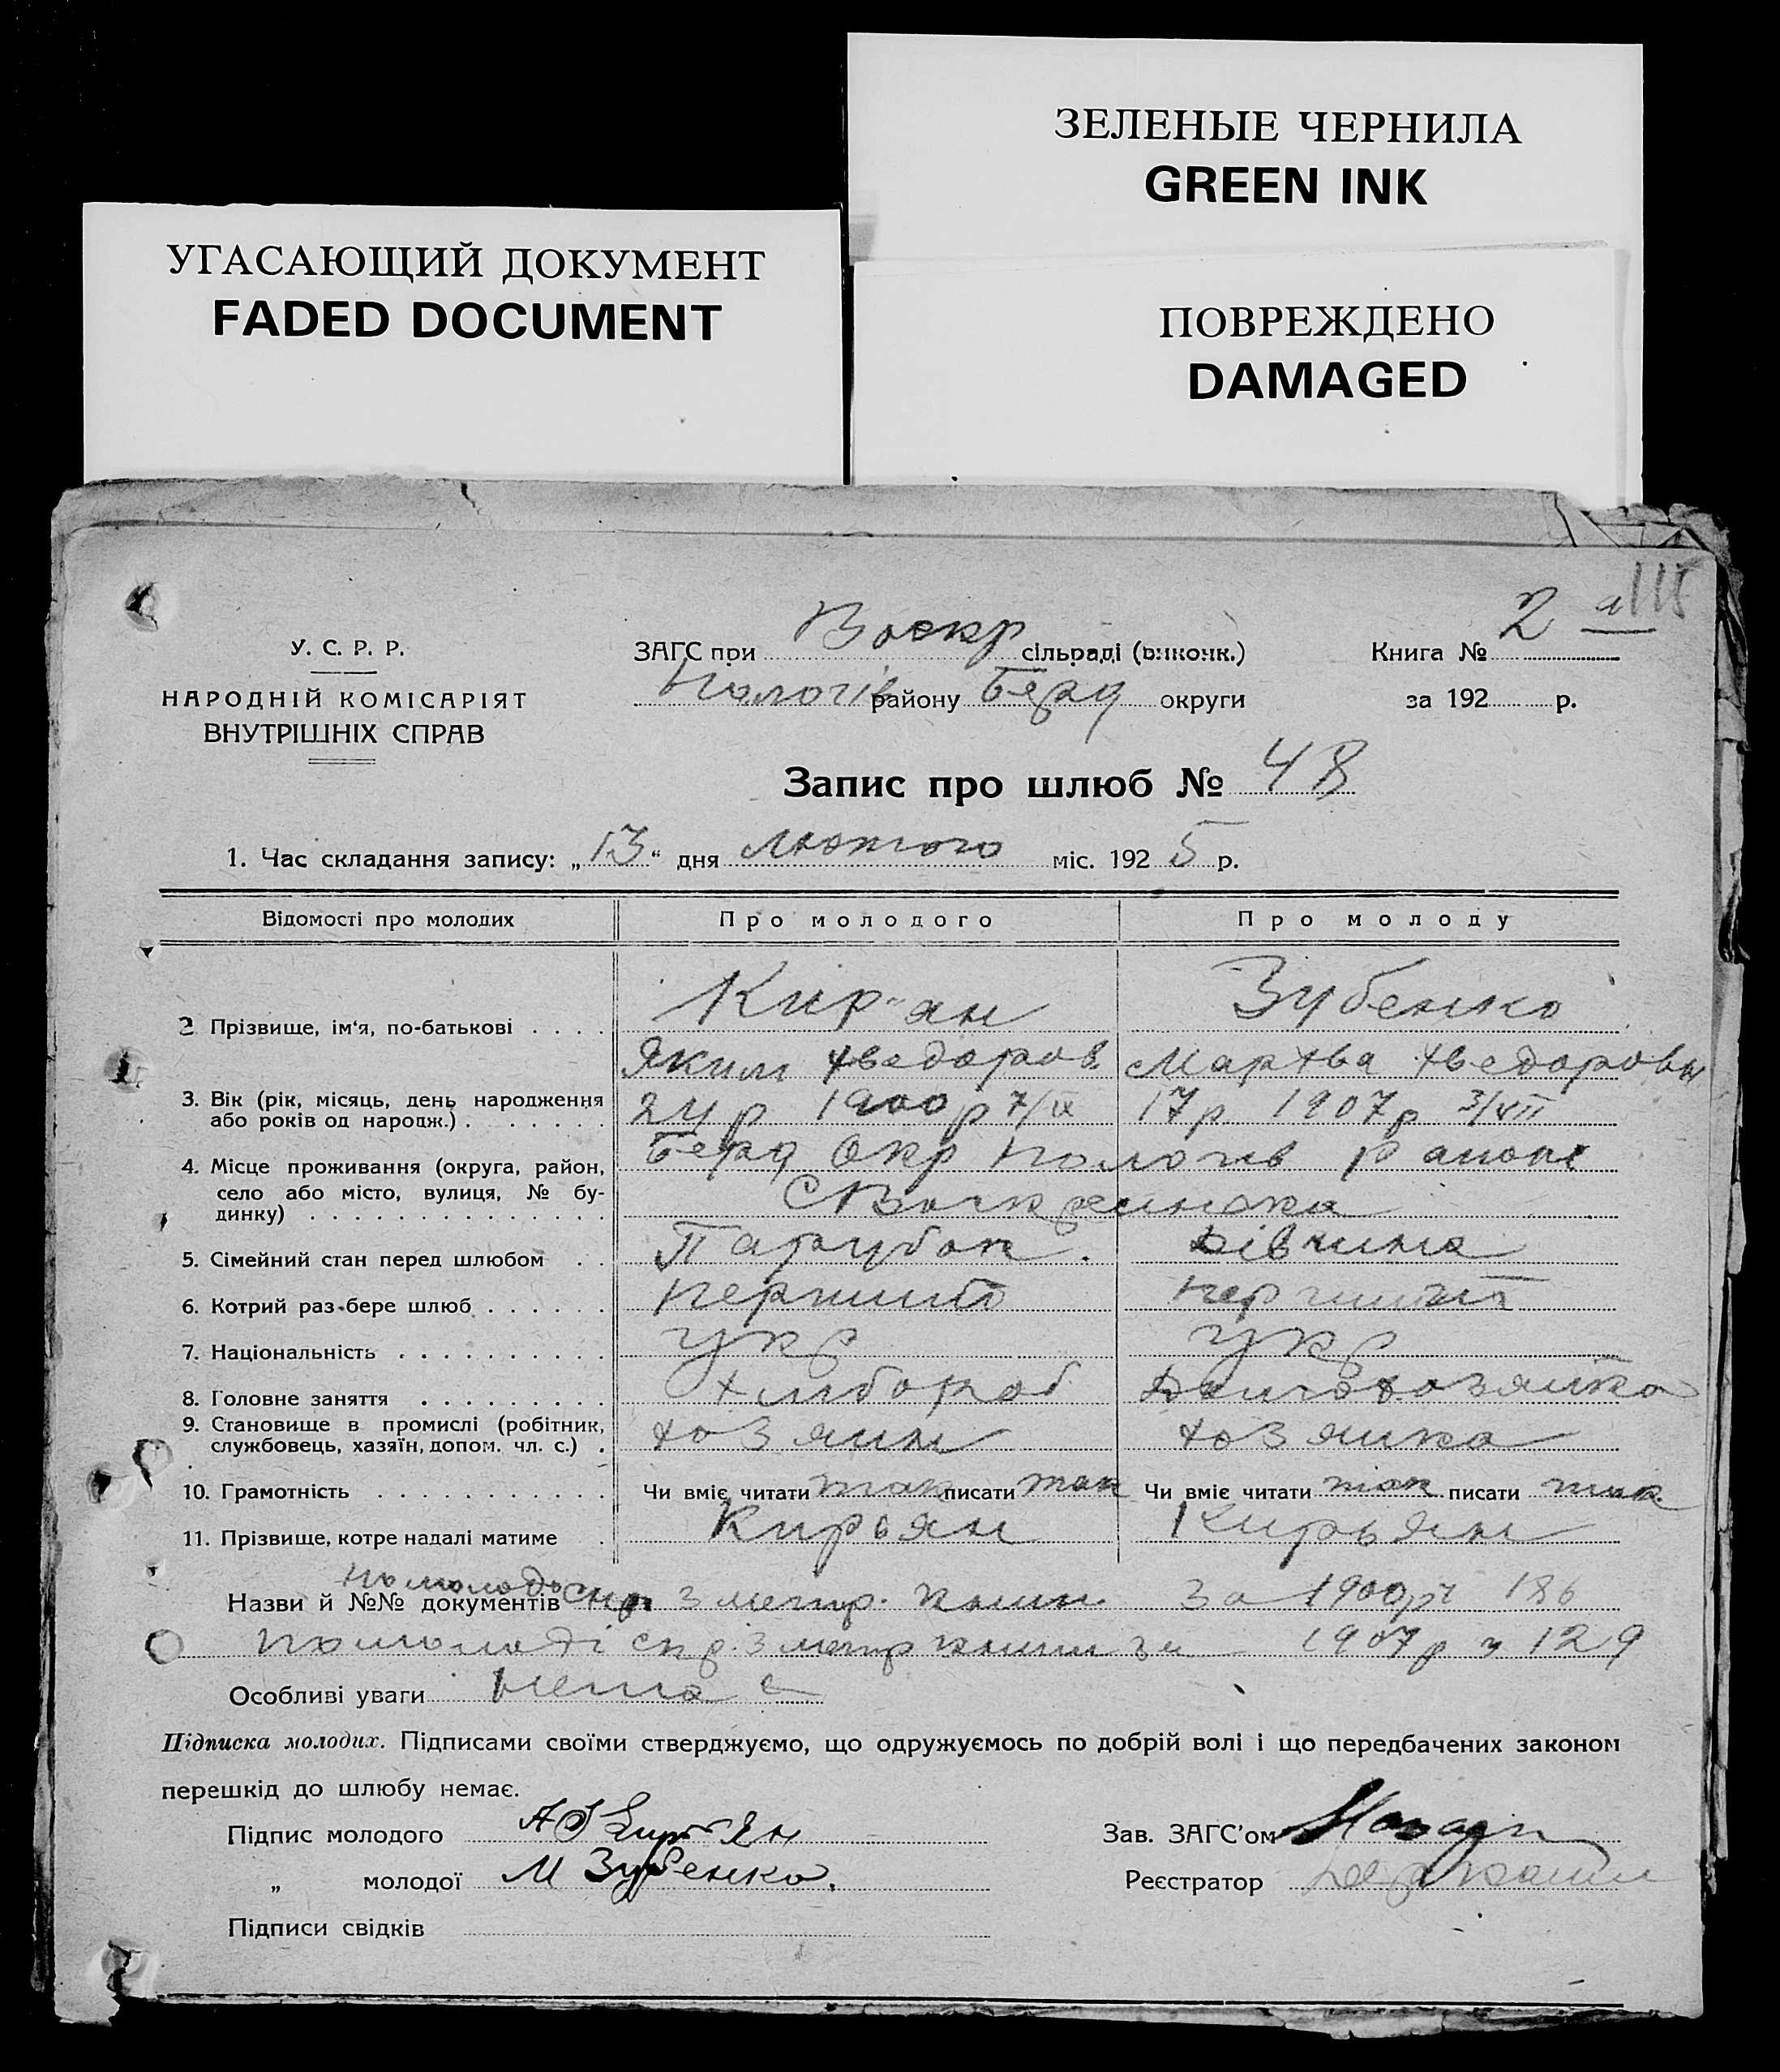 ЗЕЛЕНЫЕ ЧЕРНИЛА
GREEN INK
УГАСАЮЩИЙ ДОКУМЕНТ
FADED DOCUMENT
ПОВРЕЖДЕНО
DAMAGED
115
У. С. Р. Р.
НАРОДНІЙ КОМІСАРІЯТ
ВНУТРІШНІХ СПРАВ
ЗАГС при Воскр сільраді (виконк.)
Пологів району Берд округи
Книга № 2
за 192 р.
Запис про шлюб № 48
1. Час складання запису: „13“ дня лютого міс. 1925 р.
Відомості про молодих Про молодого Про молоду
2 Прізвище, ім‘я, по-батькові . . . . Кир"ян Зубенко
Яким Хведоров. Мархва Хведоровн
3. Вік (рік, місяць, день народження або років од народж.) . . . . . . 24 р 1900 р 7/IX 17 р 1907 р 3/VII
4. Місце проживання (округа, район, село або місто, вулиця, № будинку) . . . . Берд Окр Пологів району
С Воскресинька
5. Сімейний стан перед шлюбом . . Парубок. Дівчина
6. Котрий раз бере шлюб . . . . . . перший перший
7. Національність . . . . . . . . . . укр укр
8. Головне заняття . . . . . . . . . хлібороб Домохозяйка
9. Становище в промислі (робітник, службовець, хазяїн, допом. чл. с.) . хозяин хозяика
10. Грамотність . . . . . . . . . . . Чи вміє читати так писати так Чи вміє читати так писати так
11. Прізвище, котре надалі матиме . Кирьян Кирьян
Назви й №№ документів спр з метр. книги за 1900 р ч 186
по молоді спр. з метр книги за 1907 р ч 129
Особливі уваги нема є
Підписка молодих. Підписами своїми стверджуємо, що одружуємось по добрій волі і що передбачених законом
перешкід до шлюбу немає.
Підпис молодого Кирьян
Зав. ЗАГС’ом
„ молодої М Зубенко.
Реєстратор
Підписи свідків